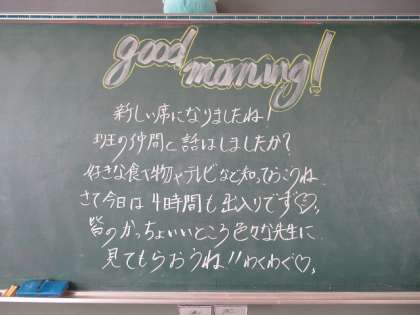 good
morning!
新しい席になりましたね!
班の仲間と話はしましたか?
好きな食べ物やテレビなど知っておこうね
さて今日は4時間も出入りです♡。
皆のかっちょいいところ色々な先生に
見てもらおうね!!わくわく♡。